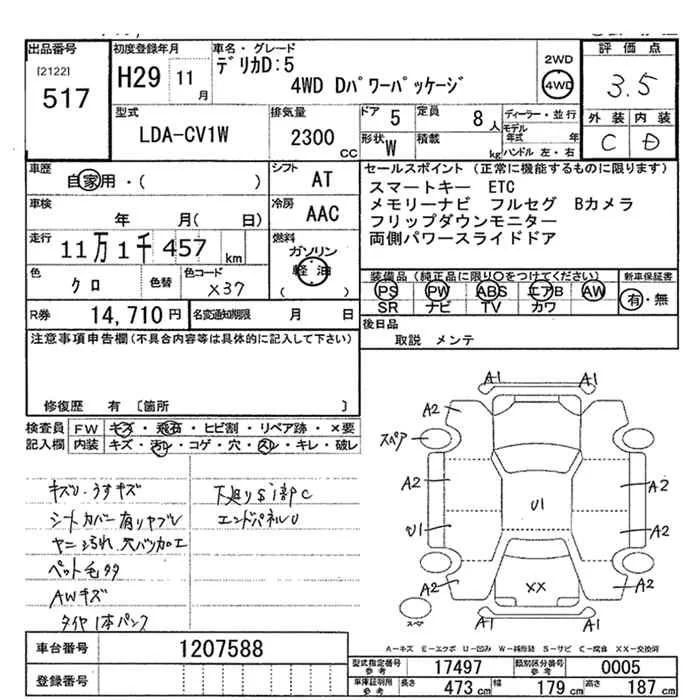 出品番号
[2122]
517
初度登録年月
H29 11月
車名・グレード
デリカD:5
4WD Dパワーパッケージ
2WD
4WD
評価点
3.5
外装 内装
C D
型式
LDA-CV1W
排気量
2300 CC
ドア 5
定員 8 人
形状 W
積載 kg
ディーラー・並行
モデル年式 年
ハンドル 左・右
車歴
自家用・( )
シフト
AT
車検
年 月( 日)
冷房
AAC
走行
11万1千457 km
燃料
ガソリン
軽油
( )
色
クロ
色替
色コード
X37
R券 14,710円
名変通知期限 月 日
セールスポイント (正常に機能するものに限ります)
スマートキー ETC
メモリーナビ フルセグ Bカメラ
フリップダウンモニター
両側パワースライドドア
装備品 (純正品に限り○をつけてください)
PS PW ABS エアB AW
SR ナビ TV カワ
新車保証書
有・無
後日品
取説 メンテ
注意事項申告欄 (不具合内容等は具体的に記入して下さい)
修復歴 有 [箇所 ]
検査員記入欄
FW キズ・飛石・ヒビ割・リペア跡・×要
内装 キズ・汚レ・コゲ・穴・スレ・キレ・破レ
キズU・うすキズ
シートカバー有りヤブレ
ヤニ汚れ 穴バツ加工
ペット毛多
AWキズ
タイヤ1本パンク
下廻りS1部C
エンドパネルU
A1 A1
A2 A2
スペア
A2 A2
U1
U1 A2
A2 XX A2
スペア
A1 A1
A-キズ E-エクボ U-凹み W-補修跡 S-サビ C-腐食 XX-交換済
車台番号 1207588
登録番号
型式指定番号 参考 17497
類別区分番号 参考 0005
車庫証明用 参考 長さ 473 cm 幅 179 cm 高さ 187 cm